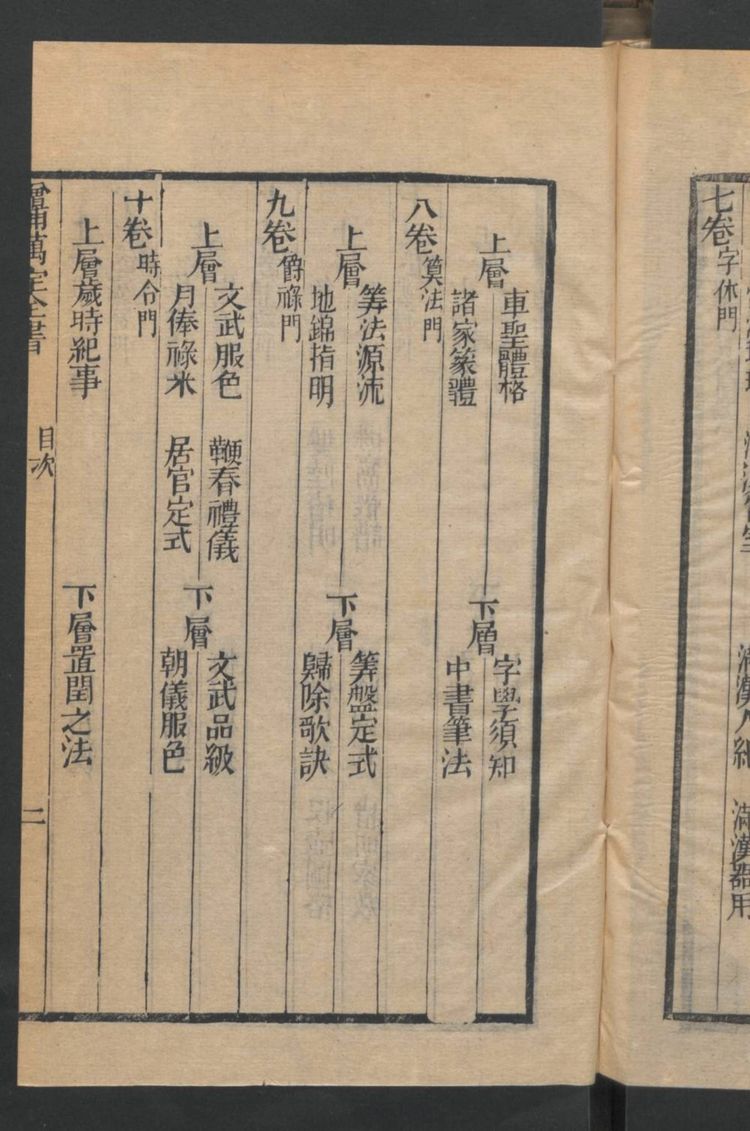 滿漢器用
七卷 字休門
上層
車聖體格
諸家篆體
下層
字學須知
中書筆法
八卷 筭法門
上層
筭法源流
地錦指明
下層
筭盤定式
歸除歌訣
九卷 爵祿門
上層
文武服色 鞭春禮儀
月俸祿米 居官定式
下層
文武品級
朝儀服色
十卷 時令門
上層歲時紀事 下層置閏之法
增補萬宝全書 目次 二